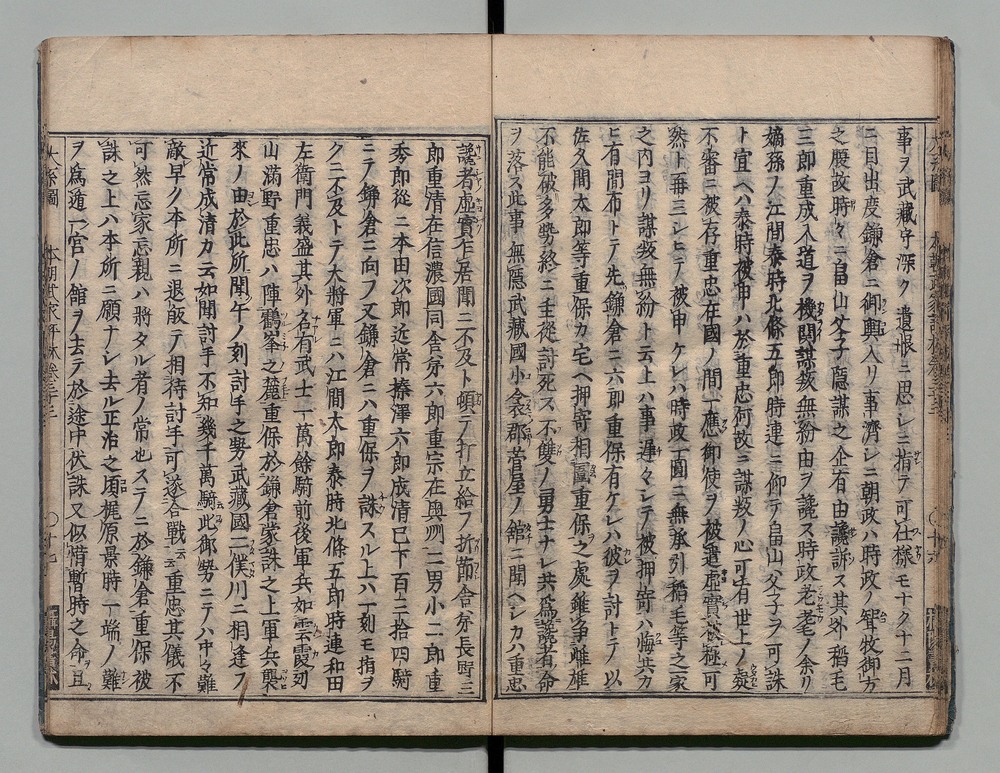 事ヲ武藏守深ク遺恨ニ思レニ指テ可仕様モナク十二月
二日出度鎌倉ニ御輿入リ事濟レニ朝政ハ時政ノ智牧御方
之腰故時々ニ畠山父子隱謀之企有由讒訴ス其外稲毛
三郎重成入道ヲ機関謀叛無紛由ヲ讒ス時政老耄ノ余リ
嫡孫ノ江間泰時北條五郎時連ニ仰テ畠山父子ヲ可誅
ト宜ヘハ泰時被申ハ於重忠何故ニ謀叛ノ心可有世上ノ疑
不審ニ被存重忠在國ノ間一應御使ヲ被遣虚實被極可
然ト再三レヒテ被申ケレハ時政一圓ニ無承引稲毛等之家
之内ヨリ謀叛無紛ト云上ハ事遅々レテ被押寄ハ悔共カ
ヒ有間布トテ先鎌倉ニ六郎重保有ケレハ彼ヲ討トテ以
佐久間太郎等重保カ宅ヘ押寄相圍重保之處雖爭雌雄
不能破多勢終ニ主從討死ス不雙ノ勇士ナレ共爲讒者命
ヲ落ス此事無隱武藏國小衾郡菅屋ノ舘ニ聞ヘレカハ重忠
讒者虚實乍居聞ニ不及ト頓テ打立給フ折節舎弟長時三
郎重清在信濃國同舎弟六郎重宗在奥州二男小二郎重
秀郎從ニ本田次郎近常榛澤六郎成清已下百三拾四騎
ニテ鎌倉ニ向フ又鎌倉ニハ重保ヲ誅スル上ハ一刻モ指ヲ
クニ不及トテ大將軍ニハ江間太郎泰時北條五郎時連和田
左衛門義盛其外名有武士一萬餘騎前後軍兵如雲霞列
山滿野重忠ハ陣鶴峯之麓重保於鎌倉蒙誅之上軍兵襲
來ノ由於此所聞午ノ刻討手之勢武藏國二僕川ニ相逢フ
近常成清カ云如聞討手不知幾千萬騎此御勢ニテハ中々難
敵早ク本所ニ退皈テ相待討手可遂合戰云云重忠其儀不
可然忘家忘親ハ將タル者ノ常也ステニ於鎌倉重保被
誅之上ハ本所ニ願ナレ去ル正治之頃梶原景時一端ノ難
ヲ爲遁一宮ノ舘ヲ去テ於途中伏誅又似惜暫時之命且
大系圖
本朝武家評林 卷三十三